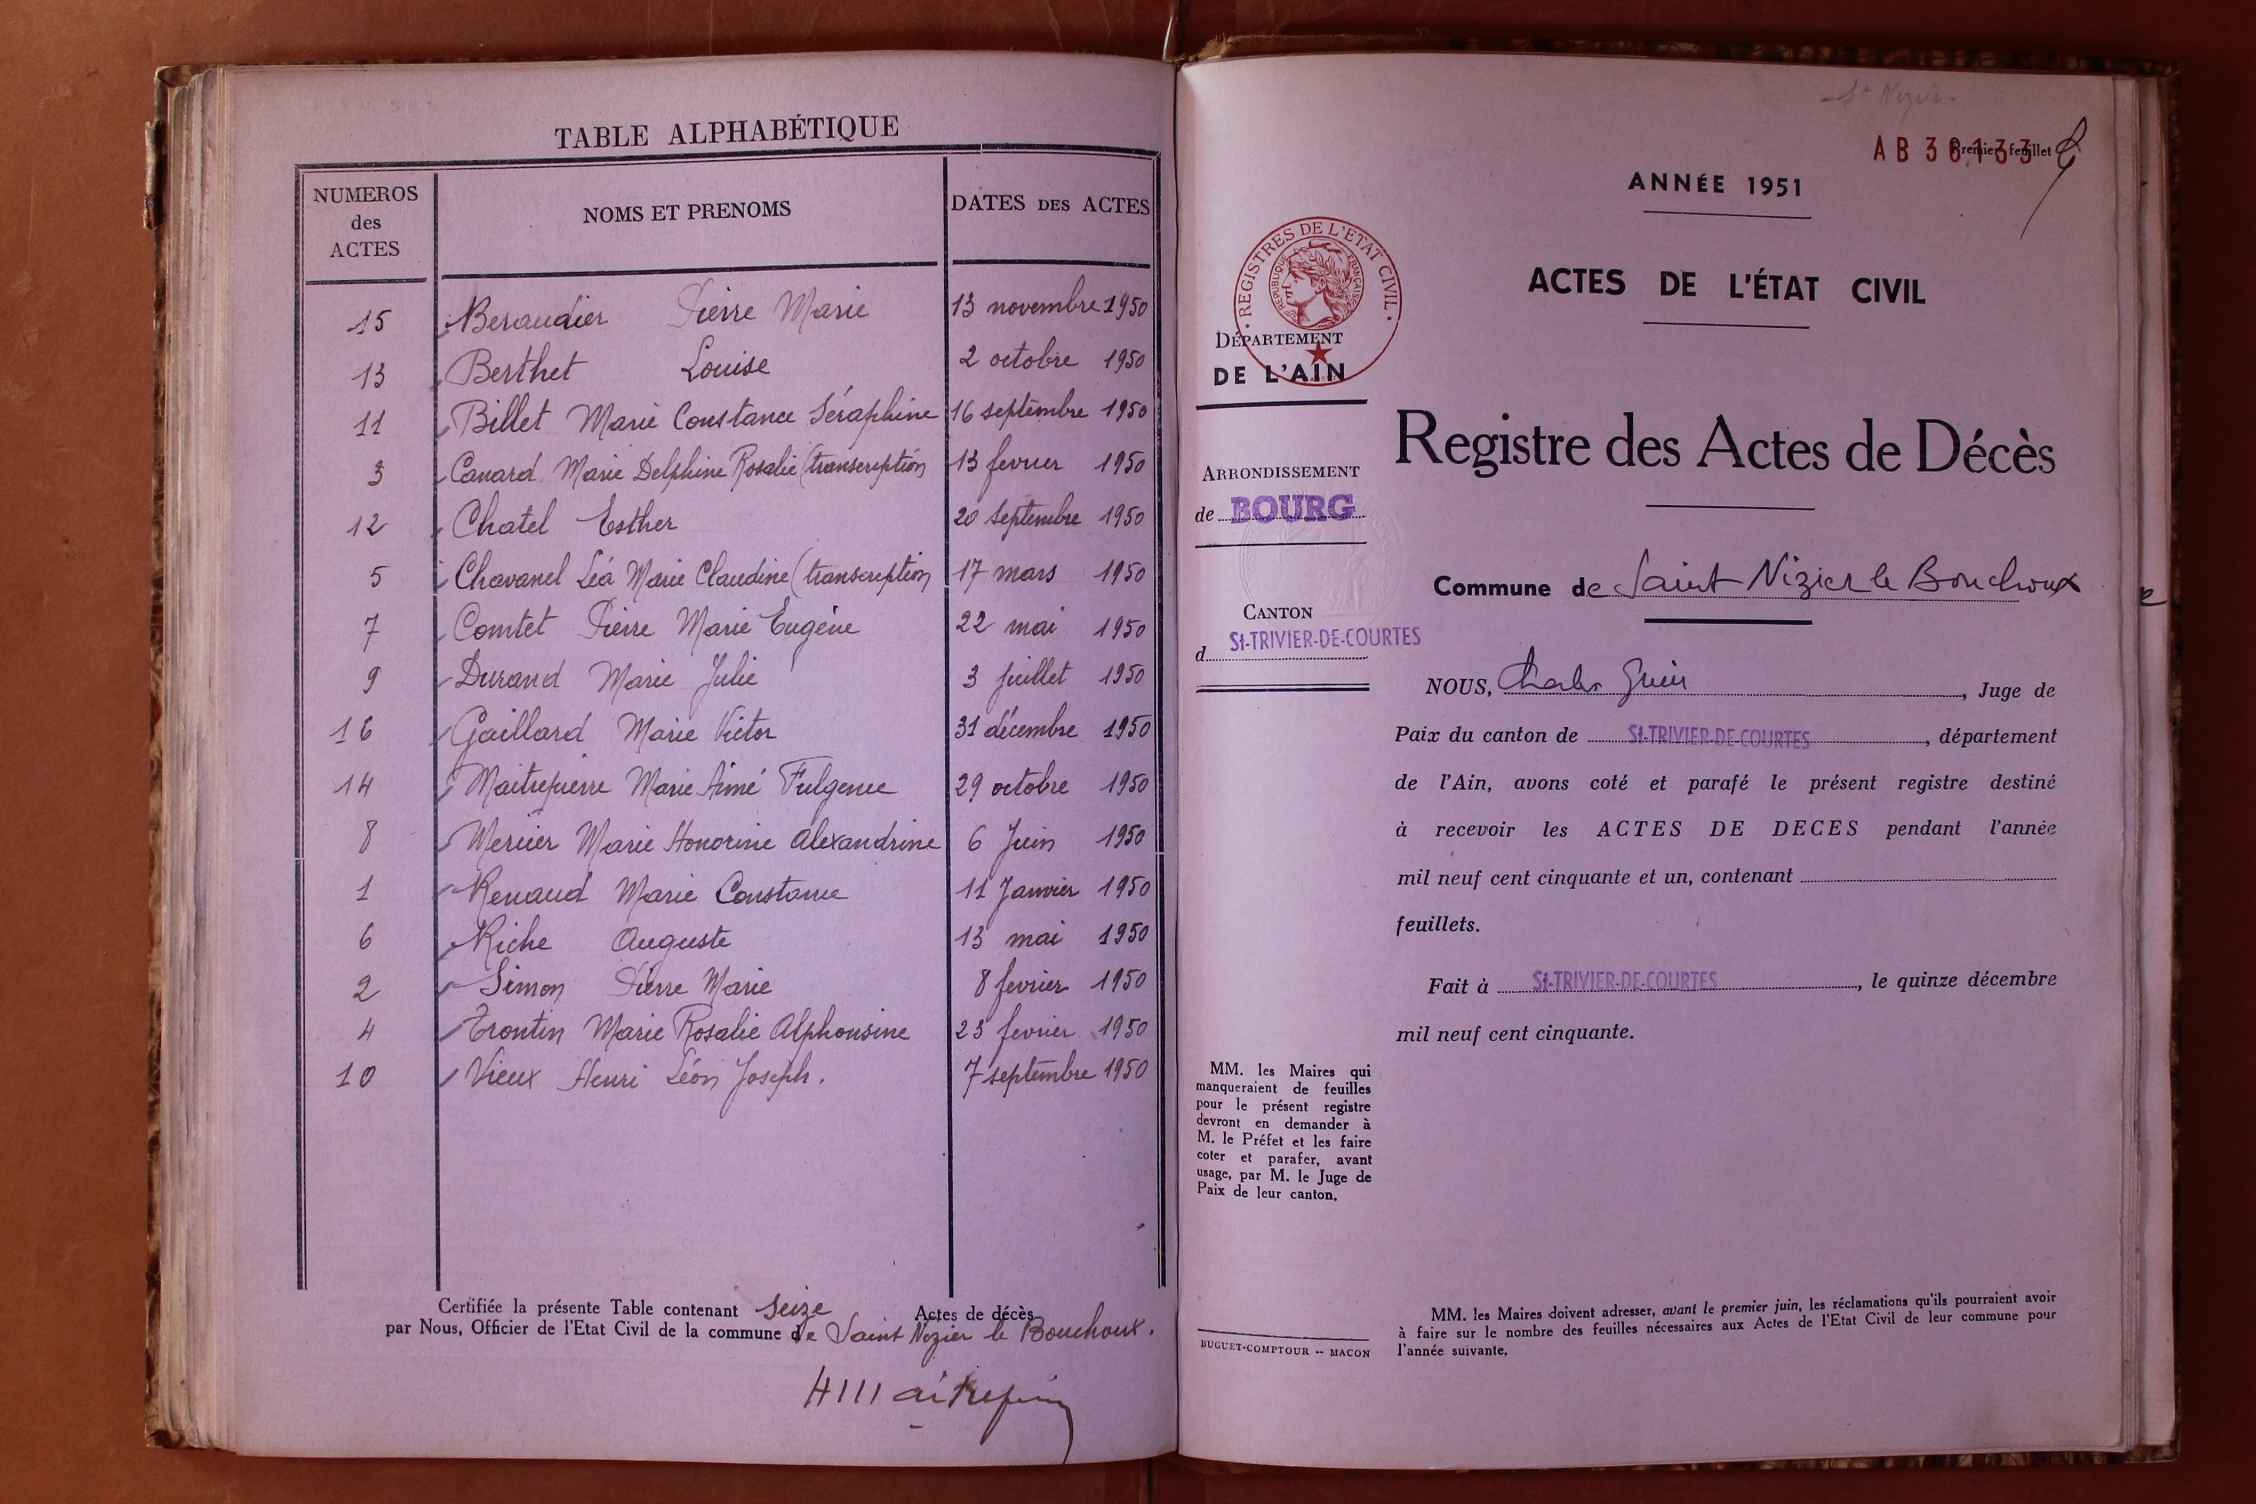 TABLE ALPHABÉTIQUE
NUMEROS des ACTES NOMS ET PRENOMS DATES DES ACTES
15 Beraudier Pierre Marie 13 novembre 1950
13 Berthet Louise 2 octobre 1950
11 Billet Marie Constance Séraphine 16 septembre 1950
3 Canard Marie Delphine Rosalie (transcription 13 fevrier 1950
12 Chatel Esther 20 septembre 1950
5 Chavanel Léa Marie Claudine (transcription 17 mars 1950
7 Comtet Pierre Marie Eugène 22 mai 1950
9 Durand Marie Julie 3 juillet 1950
16 Gaillard Marie Victor 31 décembre 1950
14 Maitrepierre Marie Aimé Fulgence 29 octobre 1950
8 Mercier Marie Honorine Alexandrine 6 Juin 1950
1 Renaud Marie Constance 11 Janvier 1950
6 Riche Auguste 13 mai 1950
2 Simon Pierre Marie 8 fevrier 1950
4 Trontin Marie Rosalie Alphonsine 23 fevrier 1950
10 Vieux Henri Léon Joseph. 7 septembre 1950
Certifiée la présente Table contenant seize Actes de décès
par Nous, Officier de l'Etat Civil de la commune de Saint Nizier le Bouchoux.
St Nizier
AB 36133 Premier feuillet
ANNÉE 1951
ACTES DE L'ÉTAT CIVIL
REGISTRES DE L'ETAT CIVIL
REPUBLIQUE FRANÇAISE
DÉPARTEMENT
DE L'AIN
Registre des Actes de Décès
ARRONDISSEMENT
de BOURG
Commune de Saint Nizier le Bouchoux
CANTON
d St-TRIVIER-DE-COURTES
NOUS, Charles , Juge de
Paix du canton de St-TRIVIER-DE-COURTES, département
de l'Ain, avons coté et parafé le présent registre destiné
à recevoir les ACTES DE DECES pendant l'année
mil neuf cent cinquante et un, contenant
feuillets.
Fait à St-TRIVIER-DE-COURTES, le quinze décembre
mil neuf cent cinquante.
MM. les Maires qui
manqueraient de feuilles
pour le présent registre
devront en demander à
M. le Préfet et les faire
coter et parafer, avant
usage, par M. le Juge de
Paix de leur canton.
BUGUET-COMPTOUR -- MACON
MM. les Maires doivent adresser, avant le premier juin, les réclamations qu'ils pourraient avoir
à faire sur le nombre des feuilles nécessaires aux Actes de l'Etat Civil de leur commune pour
l'année suivante.